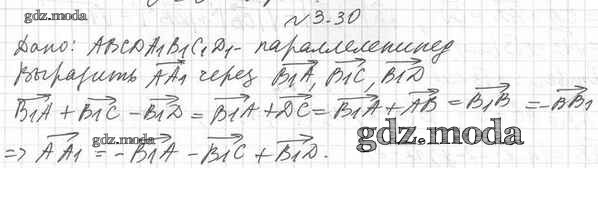 №3.30
gdz.moda
Дано: ABCDA1B1C1D1 - параллелепипед
Выразить AA1 через B1A, B1C, B1D
B1A + B1C - B1D = B1A + DC = B1A + AB = B1B = -BB1
gdz.moda
=> AA1 = -B1A - B1C + B1D.